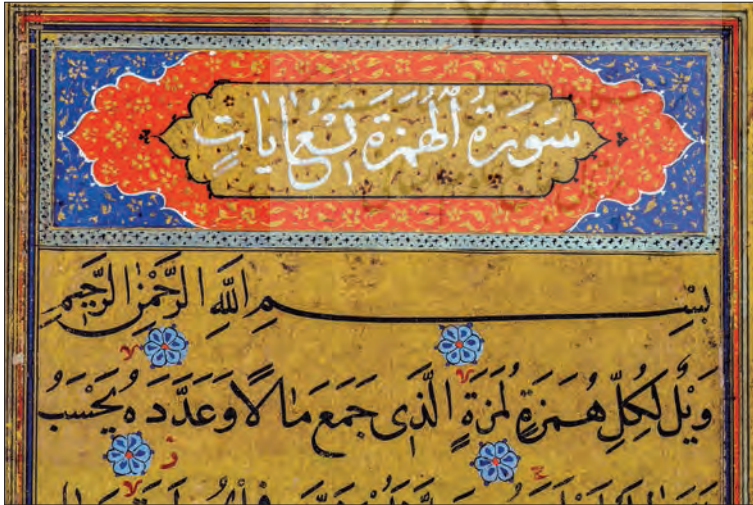 سُورَةُ ٱلْهُمَزَةِ تِسْعُ اٰيَاتٍ
بِسْمِ اللّٰهِ الرَّحْمٰنِ الرَّحِيمِ
وَيْلٌ لِكُلِّ هُمَزَةٍ لُمَزَةٍ الَّذِى جَمَعَ مَالًا وَعَدَّدَهُ يَحْسَبُ